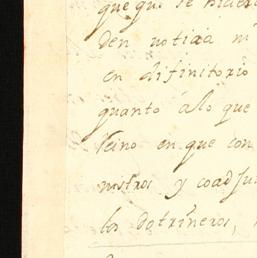 que que se hicier
den notizia n
en difinitorio
quanto alo que
leino en que con
nistros y coadju
los dotrineros,